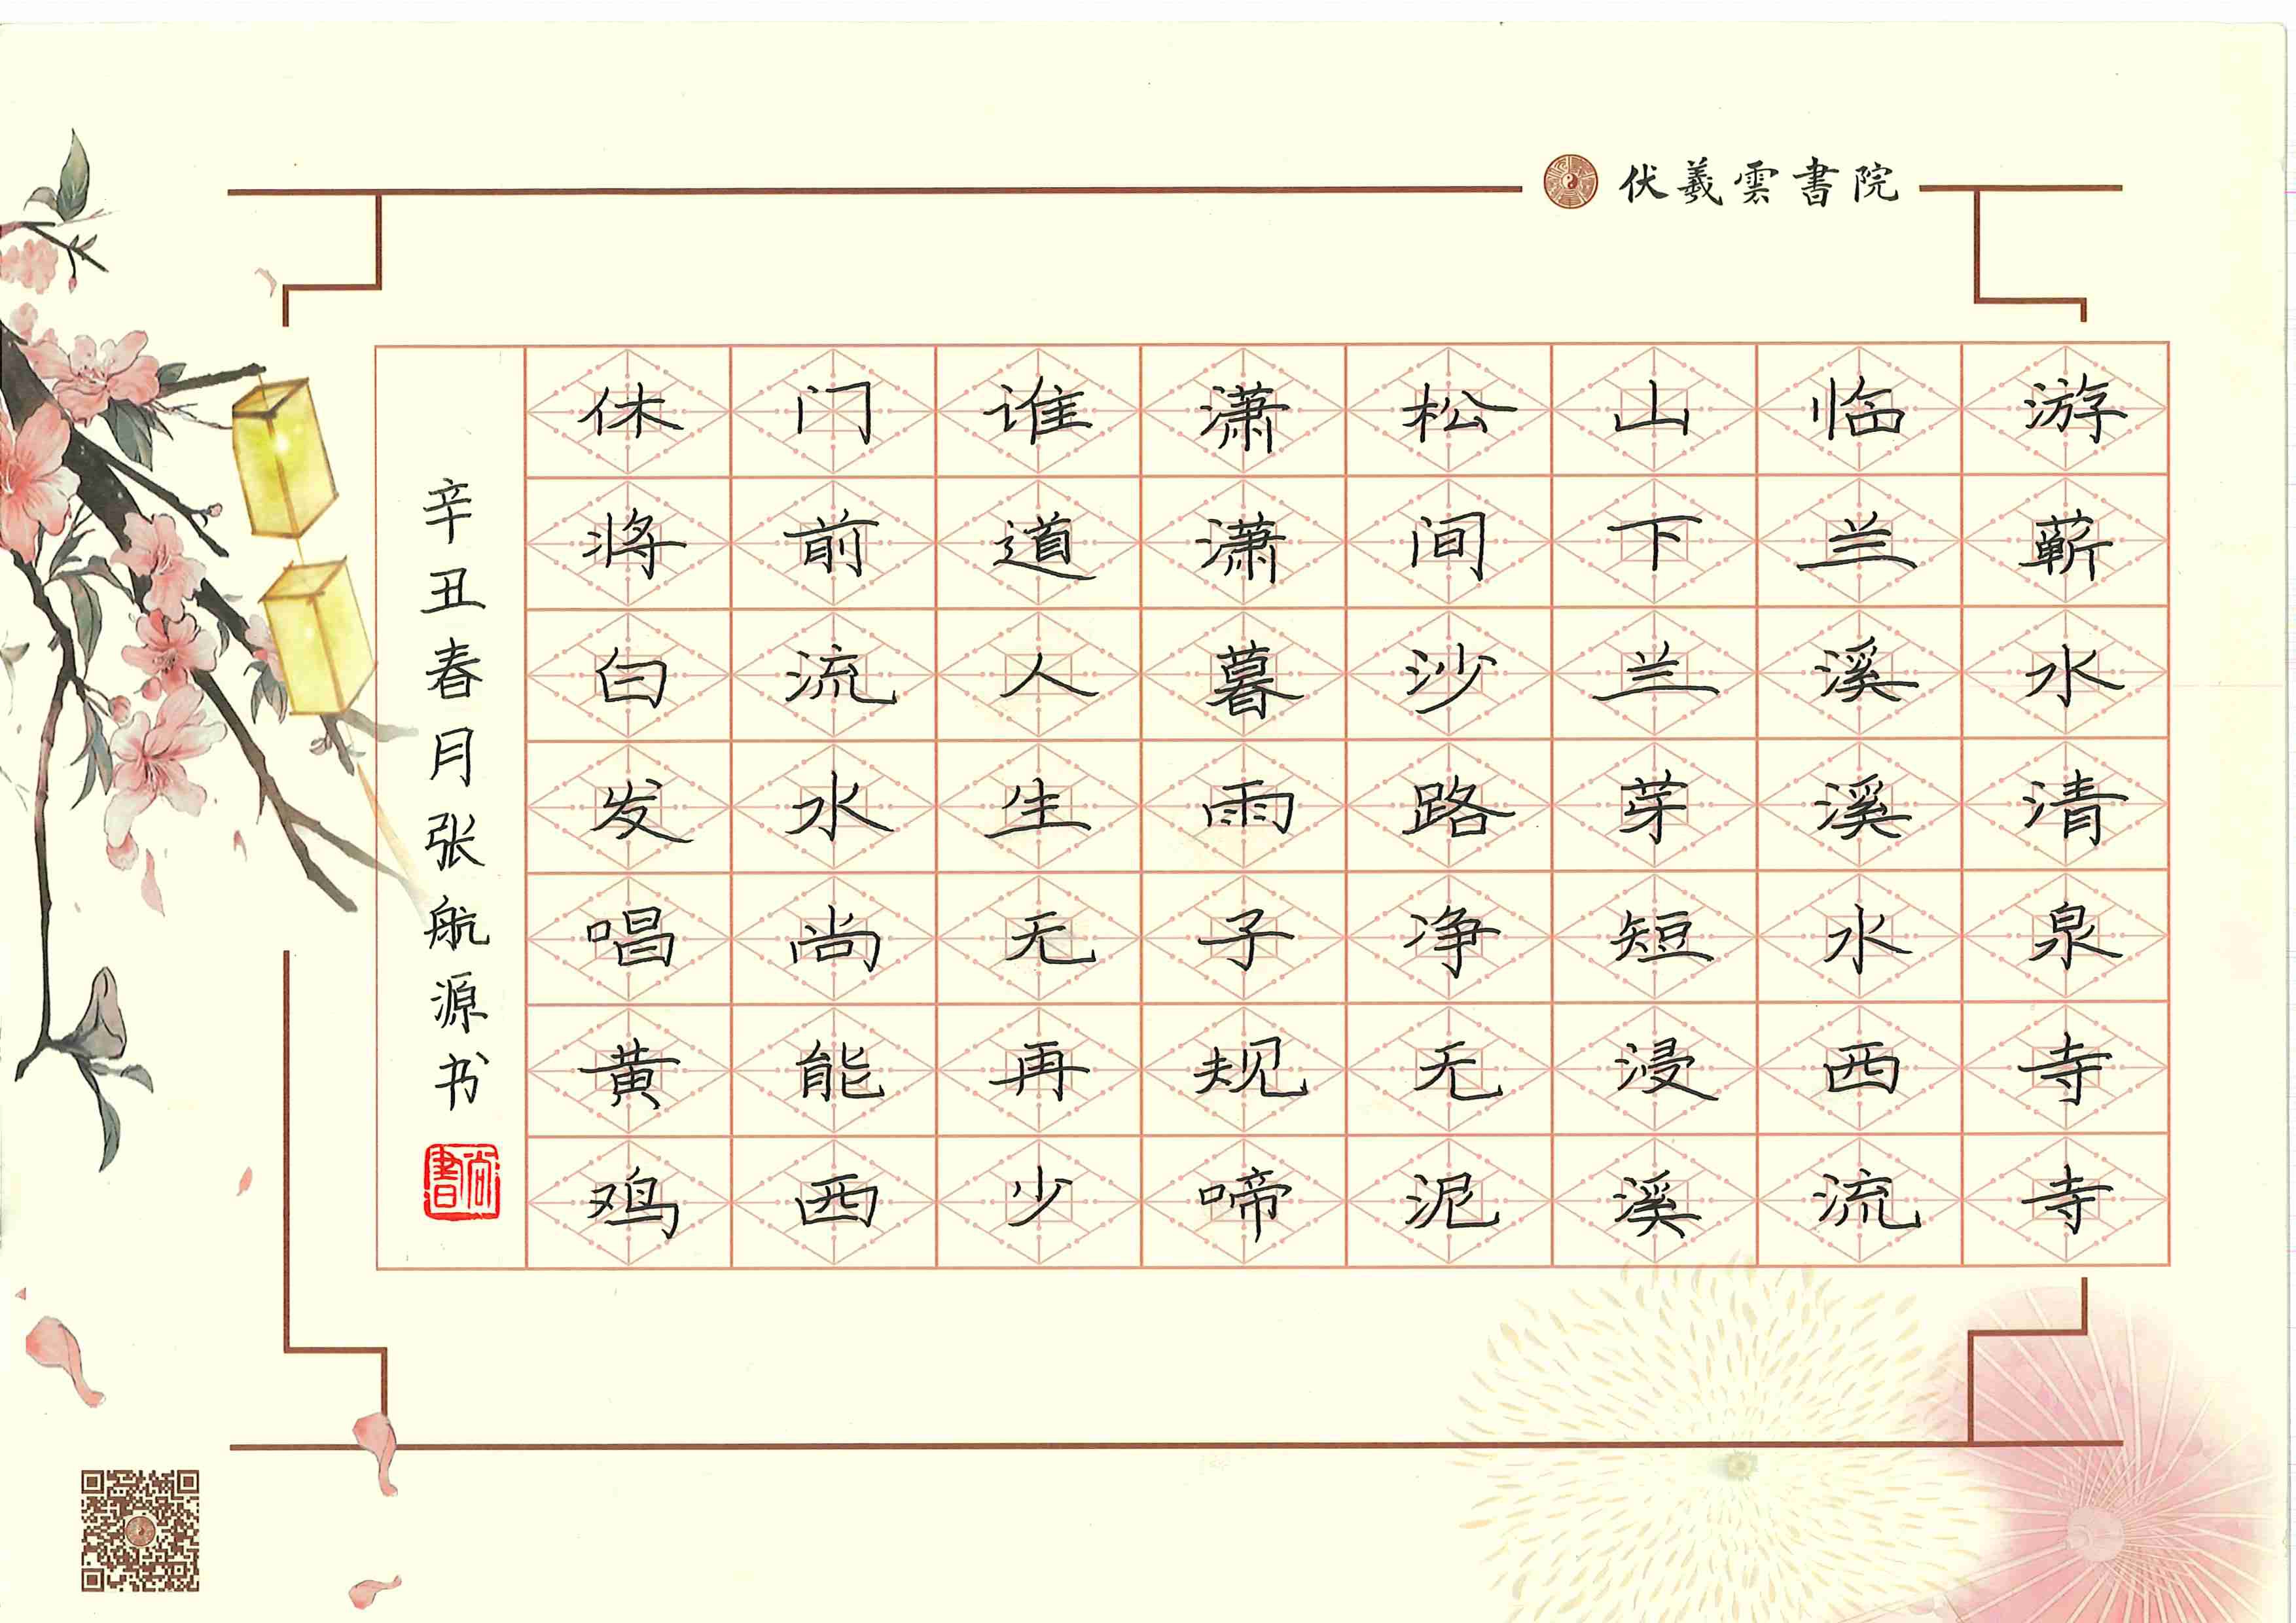 伏羲雲書院
游蕲水清泉寺寺
临兰溪溪水西流
山下兰芽短浸溪
松间沙路净无泥
潇潇暮雨子规啼
谁道人生无再少
门前流水尚能西
休将白发唱黄鸡
辛丑春月张航源书